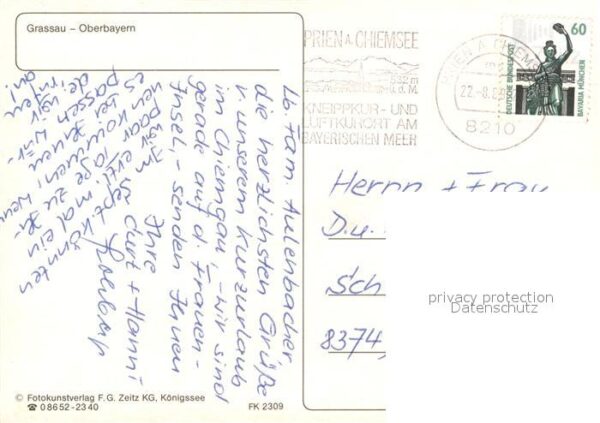 Grassau – Oberbayern
PRIEN A. CHIEMSEE
532 m
ü.d.M.
KNEIPPKUR- UND
LUFTKURORT AM
BAYERISCHEN MEER
PRIEN A CHIEMSEE
22.-8.
8210
60
DEUTSCHE BUNDESPOST
BAVARIA MÜNCHEN
Lb. Fam. Aulenbacher,
die herzlichsten Grüße
v. unserem Kurzurlaub
im Chiemgau, - wir sind
gerade auf d. Frauen-
Insel, - senden Ihnen
Ihre
Curt + Hanni
Im Sept. könnten
wir evtl. mal ein
paar Tage zu Ih-
nen kommen, wenn
es Ihnen
passen wür-
de. Wir
rufen
an!
Herrn + Frau
D. u.
Sch
8374
privacy protection
Datenschutz
© Fotokunstverlag F. G. Zeitz KG, Königssee
☎ 0 86 52 - 23 40
FK 2309